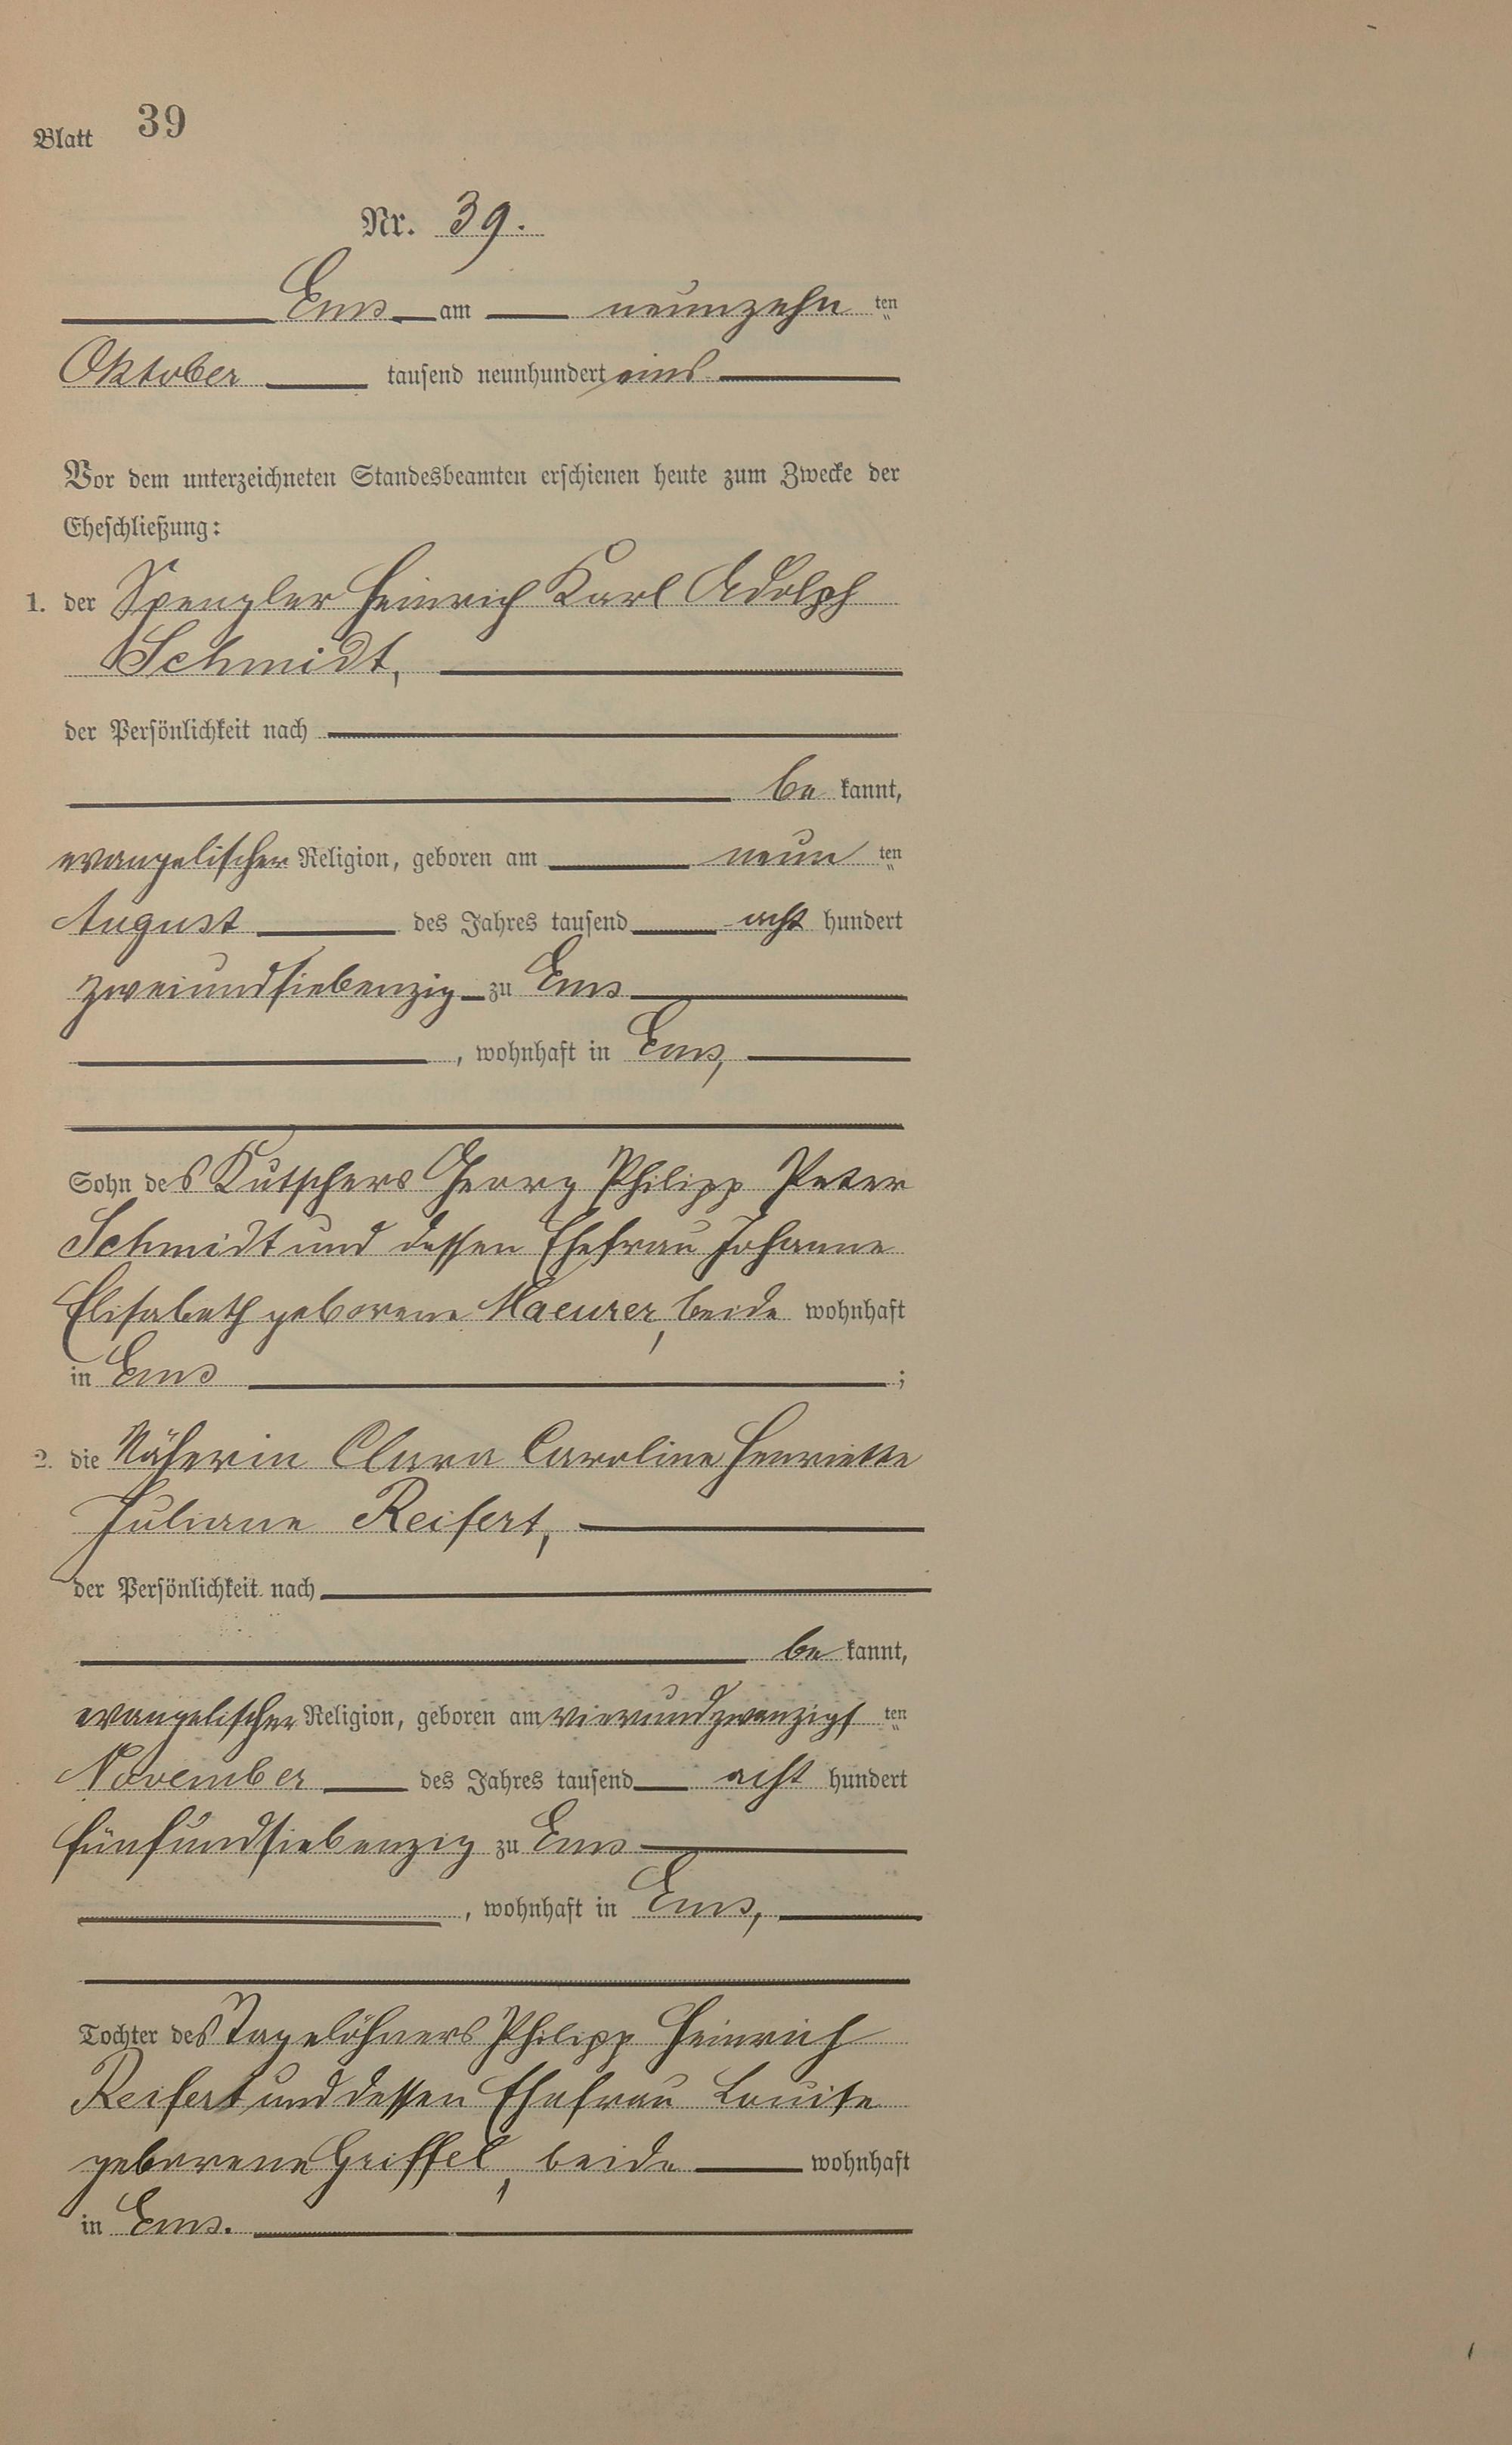 Blatt 39
Nr. 39.
Ems am neunzehn ten
Oktober tausend neunhundert eins
Vor dem unterzeichneten Standesbeamten erschienen heute zum Zwecke der
Eheschließung:
1. der Spengler Heinrich Karl Adolph
Schmidt,
der Persönlichkeit nach
be kannt,
evangelischer Religion, geboren am neun ten
August des Jahres tausend acht hundert
zweiundsiebenzig zu Ems
, wohnhaft in Ems,
Sohn des Kutschers Georg Philipp Peter
Schmidt und dessen Ehefrau Johanne
Elisabeth geborene Maeurer, beide wohnhaft
in Ems ;
2. die Näherin Clara Caroline Henriette
Juliane Reifert,
der Persönlichkeit nach
be kannt,
evangelischer Religion, geboren am vierundzwanzigs ten
November des Jahres tausend acht hundert
fünfundsiebenzig zu Ems
, wohnhaft in Ems,
Tochter des Tagelöhners Philipp Heinrich
Reifert und dessen Ehefrau Louise
geborene Griffel, beide wohnhaft
in Ems.